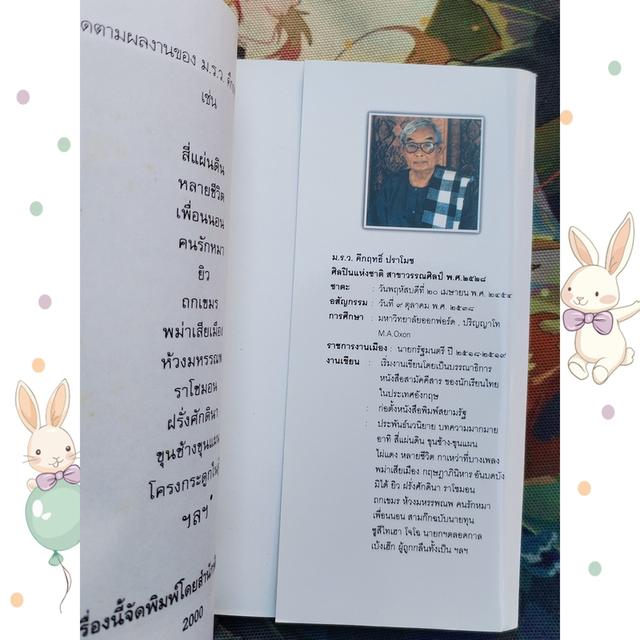 ตามผลงานของ ม.ร.ว.
เช่น
สี่แผ่นดิน
หลายชีวิต
เพื่อนนอน
คนรักหมา
ยิว
ถกเขมร
พม่าเสียเมือง
ห้วงมหรรณพ
ราโชมอน
ฝรั่งศักดินา
ขุนช้างขุนแผน
โครงกระดูกใน
ฯลฯ
เรื่องนี้จัดพิมพ์โดย
2000
ม.ร.ว. คึกฤทธิ์ ปราโมช
ศิลปินแห่งชาติ สาขาวรรณศิลป์ พ.ศ.๒๕๒๘
ชาตะ : วันพฤหัสบดีที่ ๒๐ เมษายน พ.ศ. ๒๔๕๔
อสัญกรรม : วันที่ ๙ ตุลาคม พ.ศ. ๒๕๓๘
การศึกษา : มหาวิทยาลัยออกฟอร์ด , ปริญญาโท
M.A.Oxon
ราชการงานเมือง : นายกรัฐมนตรี ปี ๒๕๑๘-๒๕๑๙
งานเขียน : เริ่มงานเขียนโดยเป็นบรรณาธิการ
หนังสือสามัคคีสาร ของนักเรียนไทย
ในประเทศอังกฤษ
: ก่อตั้งหนังสือพิมพ์สยามรัฐ
: ประพันธ์นวนิยาย บทความมากมาย
อาทิ สี่แผ่นดิน ขุนช้าง-ขุนแผน
ไผ่แดง หลายชีวิต กาเหว่าที่บางเพลง
พม่าเสียเมือง กฤษฎาภินิหาร อันบดบัง
มิได้ ยิว ฝรั่งศักดินา ราโชมอน
ถกเขมร ห้วงมหรรพณพ คนรักหมา
เพื่อนนอน สามก๊กฉบับนายทุน
ซูสีไทเฮา โจโฉ นายกฯตลอดกาล
เบ้งเฮ็ก ผู้ถูกกลืนทั้งเป็น ฯลฯ